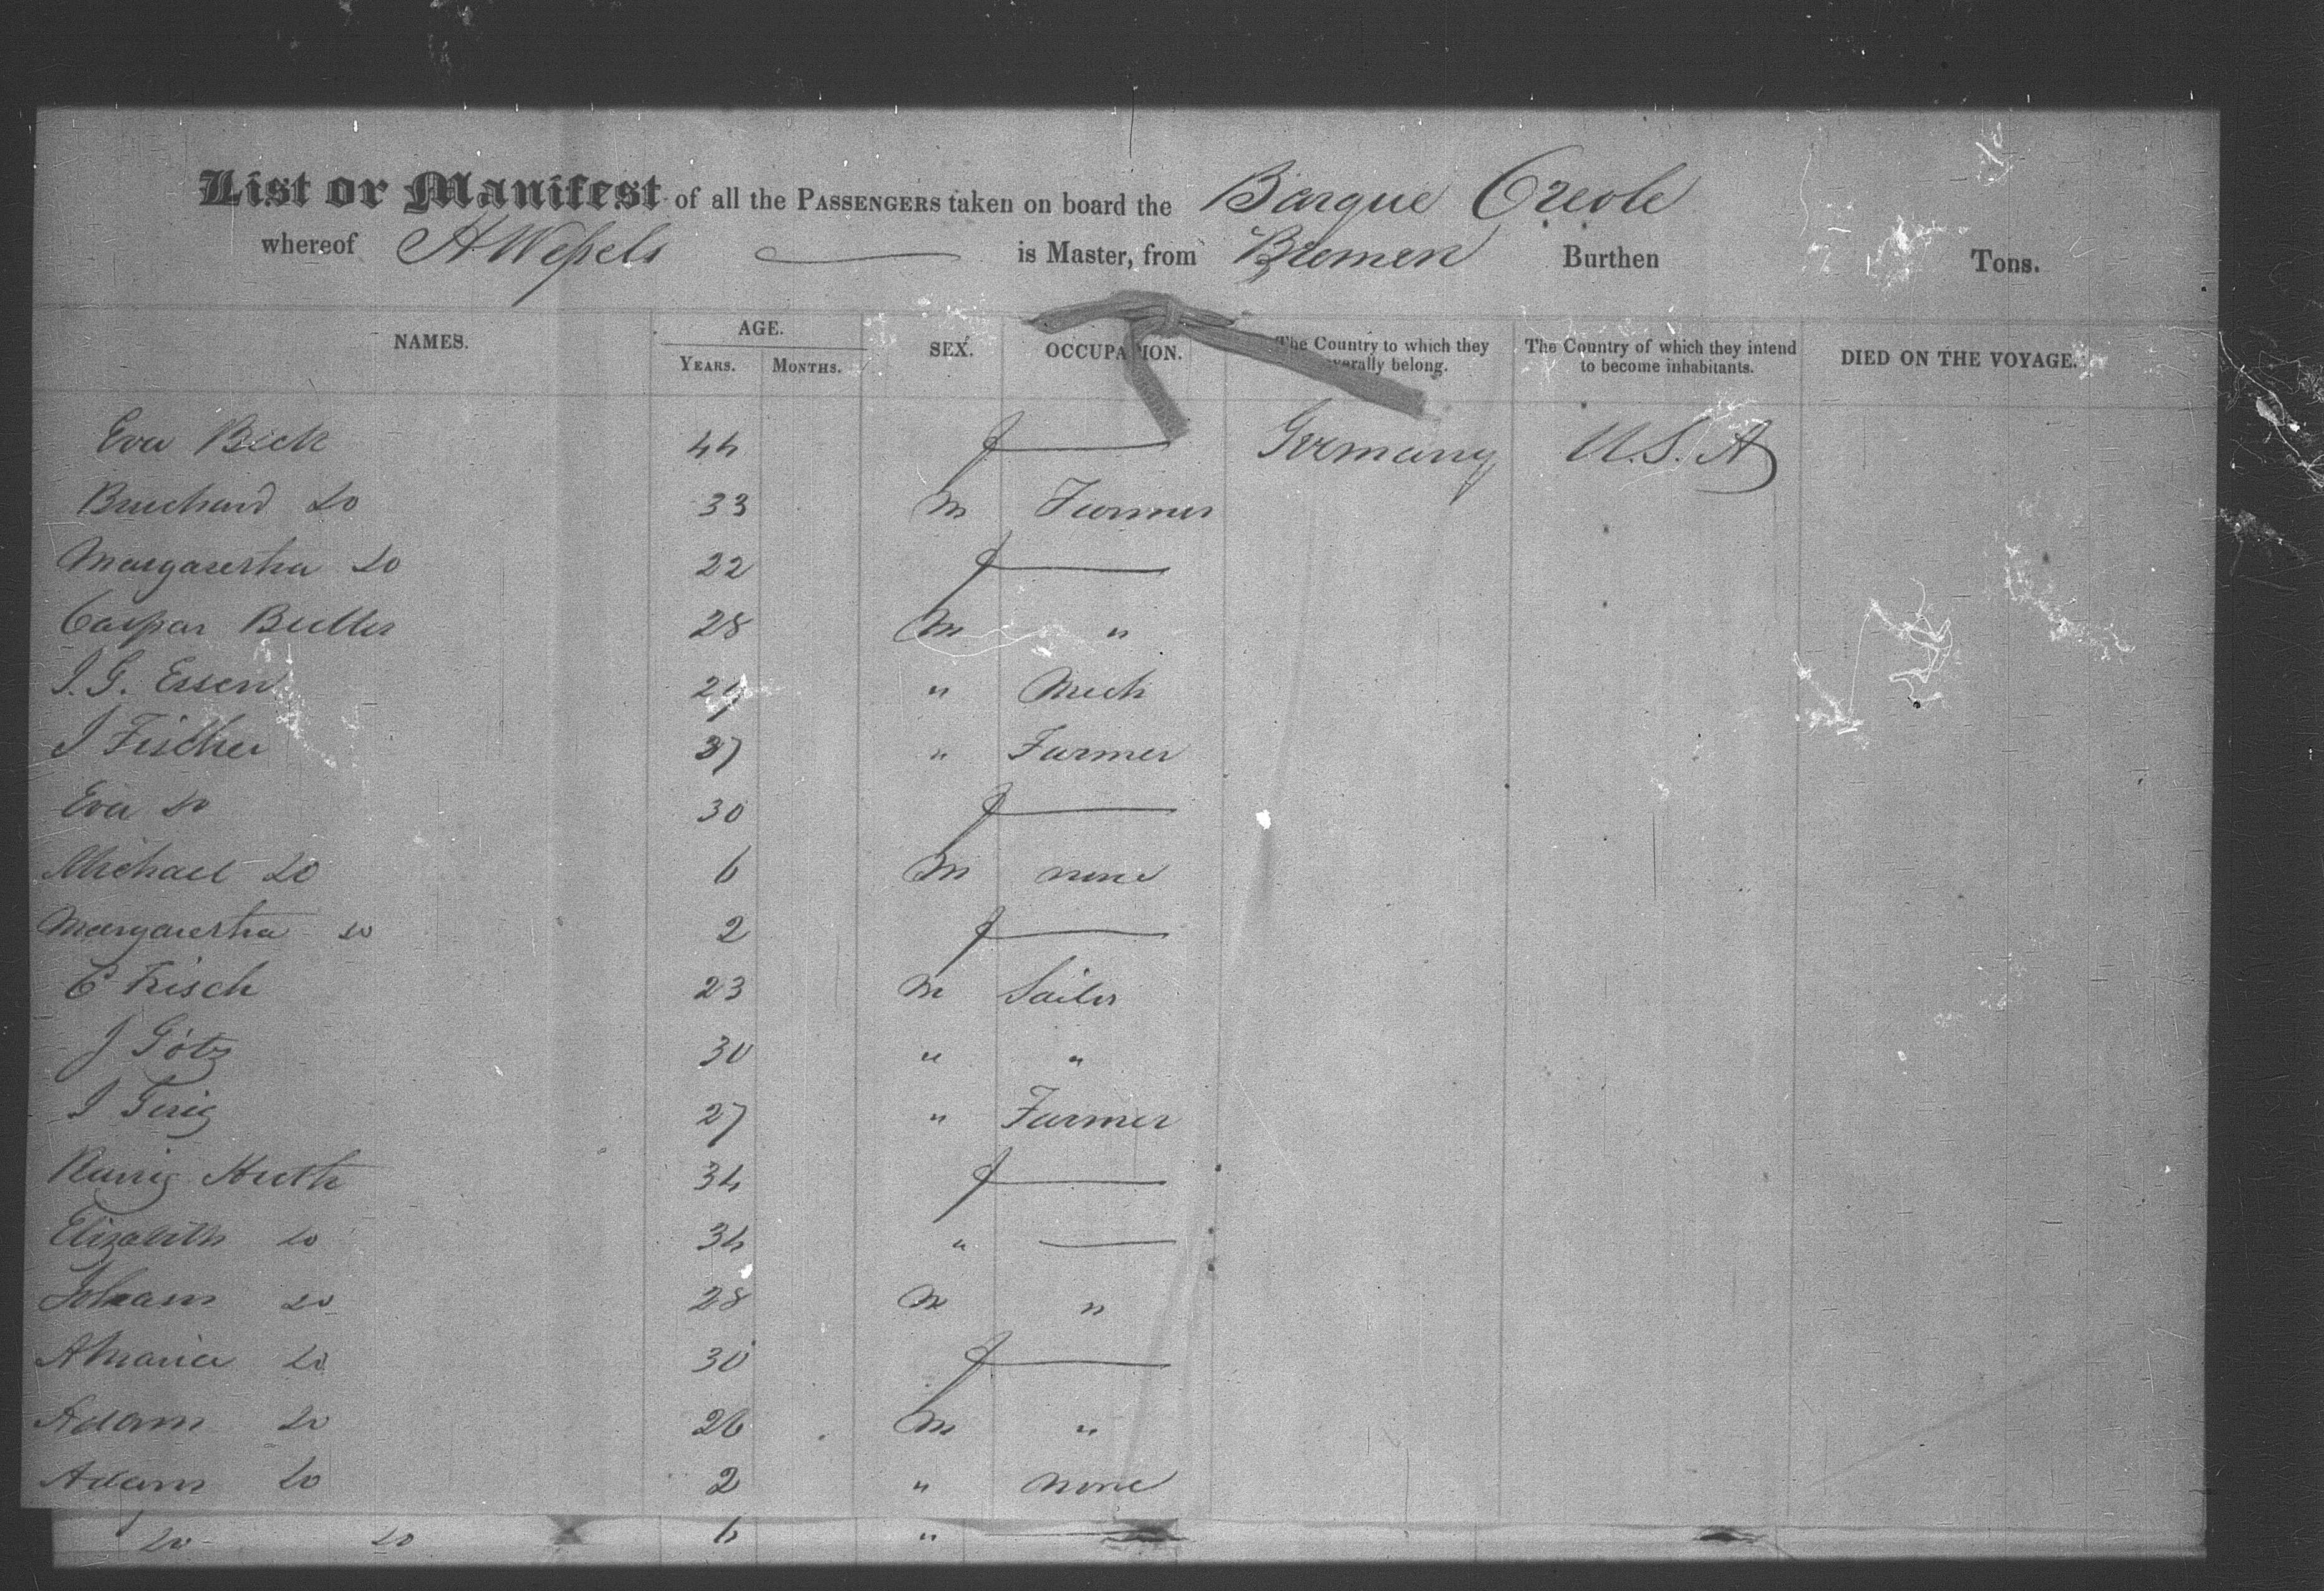 List or Manifest of all the PASSENGERS taken on board the Barque Creole
whereof H Wessels is Master, from Bremen Burthen Tons.
NAMES. AGE. YEARS. MONTHS. SEX. OCCUPATION. The Country to which they severally belong. The Country of which they intend to become inhabitants. DIED ON THE VOYAGE.
Eva Beck 44 f Germany U.S.A
do 33 m Farmer
Margaretha do 22 f
Caspar 28 m "
J. G. Essen " Mech
J Fischer 37 " Farmer
Eva do 30 f
Michael do 6 m none
Margaretha do 2 f
C Frisch 23 m Sailer
J Götz 30 " "
27 " Farmer
Huth 34 f
Elizabeth do 34 "
Johann do 28 m "
A Maria do 30 f
Adam do 26 m "
Adam do 2 " none
do do "